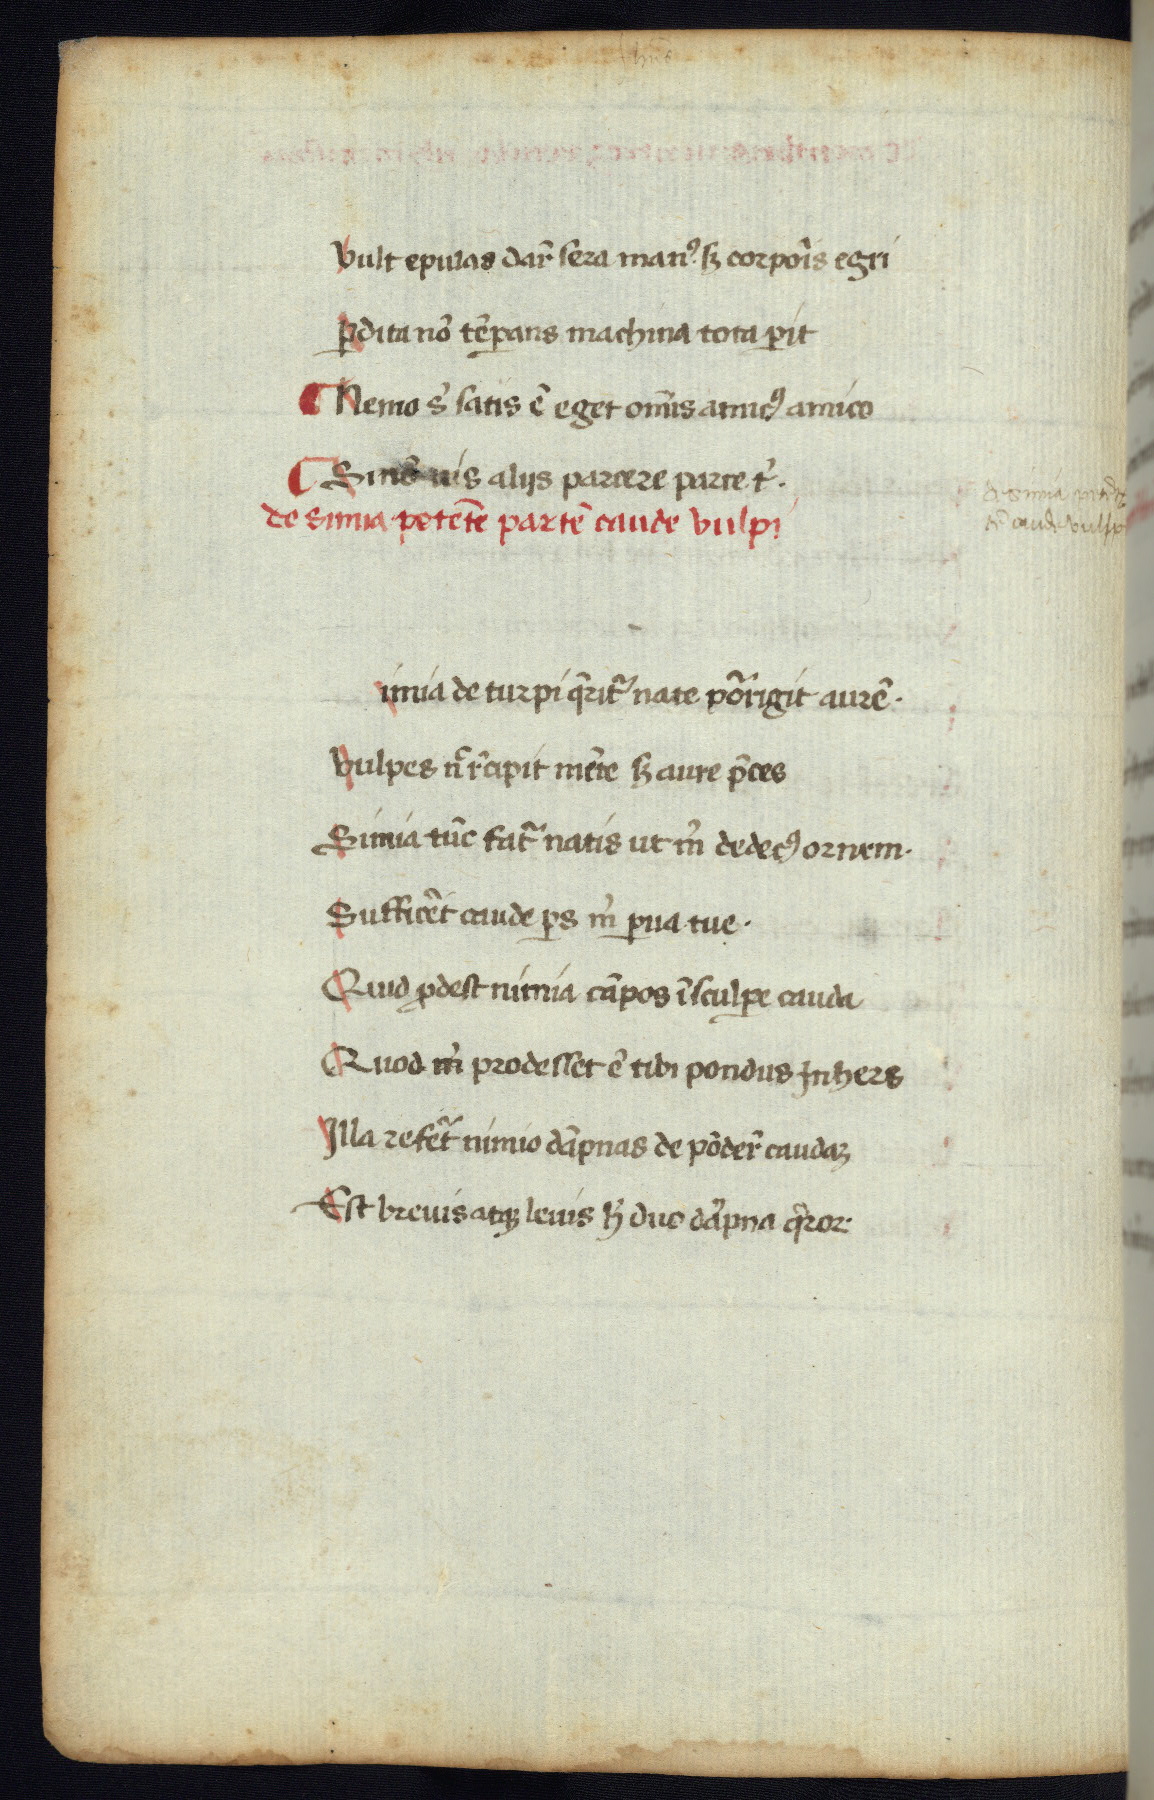 vult epulas dar̃ sera manꝰ. sꝫ corpor̃is egri
ꝑdita nõ tẽꝑans machina tota ꝑit
Nemo s̉ satis ẽ eget om̃is amicꝰ amico
Si nõ uis aliis parcere parce t̉.
de simia petẽtẽ partẽ caude vulpi
imia de turpi q̃rit᷑ nate põrigit aurẽ.
Vulpes nõ r̃cipit mẽte sꝫ aure p̃ces
Simia tũc fat᷑ natis ut m̉ dedecꝰ ornem.
Sufficẽt caude ꝑs m̉ ꝑua tue.
Quid ꝓdest nimia cãpos ĩsculꝑe cauda
Quod m̉ prodesset ẽ tibi pondus Inhers
Illa refẽt nimio dãpnas de põder̃ caudaꝫ
Est breuis atqꝫ leuis h̉ duo dãpna q̃ror.